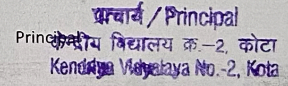 प्राचार्य / Principal
Principal
केन्द्रीय विद्यालय क्र.-2, कोटा
Kendriya Vidyalaya No.-2, Kota